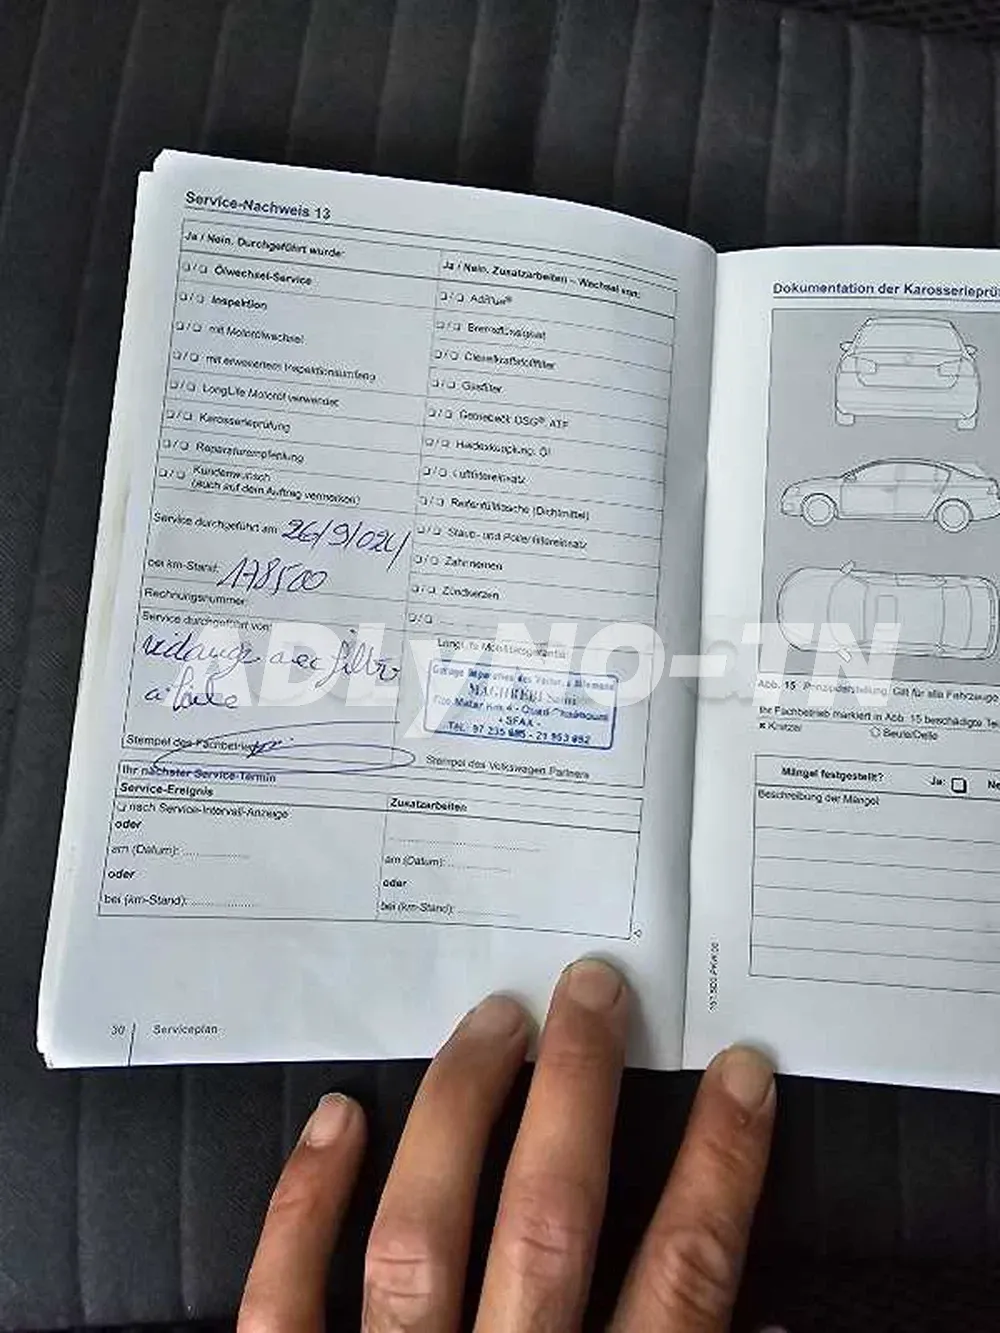 Service-Nachweis 13
Ja / Nein. Durchgeführt wurde:
❑ / ❑ Ölwechsel-Service
❑ / ❑ Inspektion
❑ / ❑ mit Motorölwechsel
❑ / ❑ mit erweitertem Inspektionsumfang
❑ / ❑ LongLife Motoröl verwendet
❑ / ❑ Karosserieprüfung
❑ / ❑ Reparaturempfehlung
❑ / ❑ Kundenwunsch
(auch auf dem Auftrag vermerken)
Service durchgeführt am 26/9/024
bei km-Stand: 178500
Rechnungsnummer
Service durchgeführt von:
vidange avec filtre
a huile
Stempel des Fachbetriebs
Ja / Nein. Zusatzarbeiten – Wechsel von:
❑ / ❑ AdBlue®
❑ / ❑ Bremsflüssigkeit
❑ / ❑ Dieselkraftstofffilter
❑ / ❑ Gasfilter
❑ / ❑ Getriebeöl: DSG®, ATF
❑ / ❑ Haldexkupplung: Öl
❑ / ❑ Luftfiltereinsatz
❑ / ❑ Reifenfüllflasche (Dichtmittel)
❑ / ❑ Staub- und Pollenfiltereinsatz
❑ / ❑ Zahnriemen
❑ / ❑ Zündkerzen
❑ / ❑
LongLife Mobilitätsgarantie:
MAGHREBI Sami
- SFAX -
Stempel des Volkswagen Partners
Ihr nächster Service-Termin
Service-Ereignis
❑ nach Service-Intervall-Anzeige
oder
am (Datum): ................
oder
bei (km-Stand): ................
Zusatzarbeiten
am (Datum): ................
oder
bei (km-Stand): ................
30 Serviceplan
Dokumentation der Karosserieprü
Abb. 15 Prinzipdarstellung: Gilt für alle Fahrzeuge
Ihr Fachbetrieb markiert in Abb. 15 beschädigte Te
x Kratzer ○ Beule/Delle
Mängel festgestellt? Ja: ❑ Ne
Beschreibung der Mängel
ADLyNO-TN